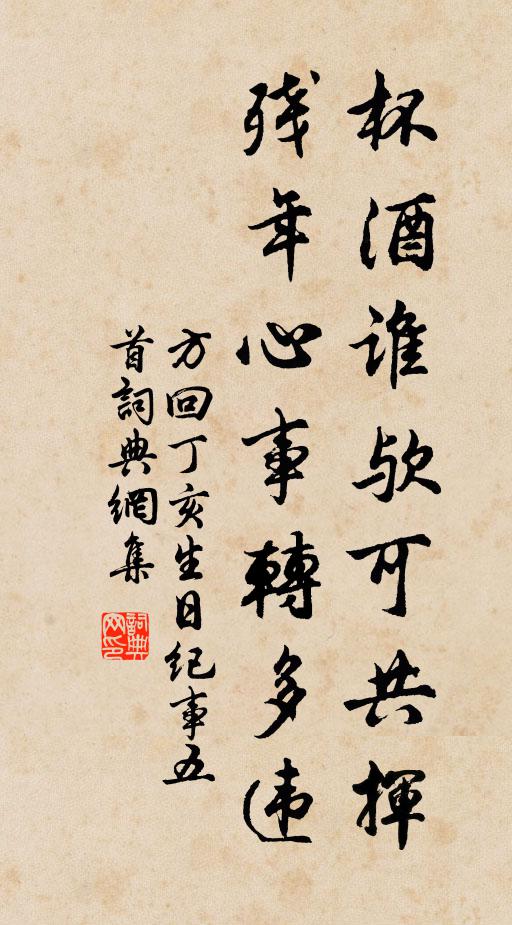 杯酒谁欤可共揮
殘年心事轉多违
方回丁亥生日纪事五
首詞典網集
詞典网印